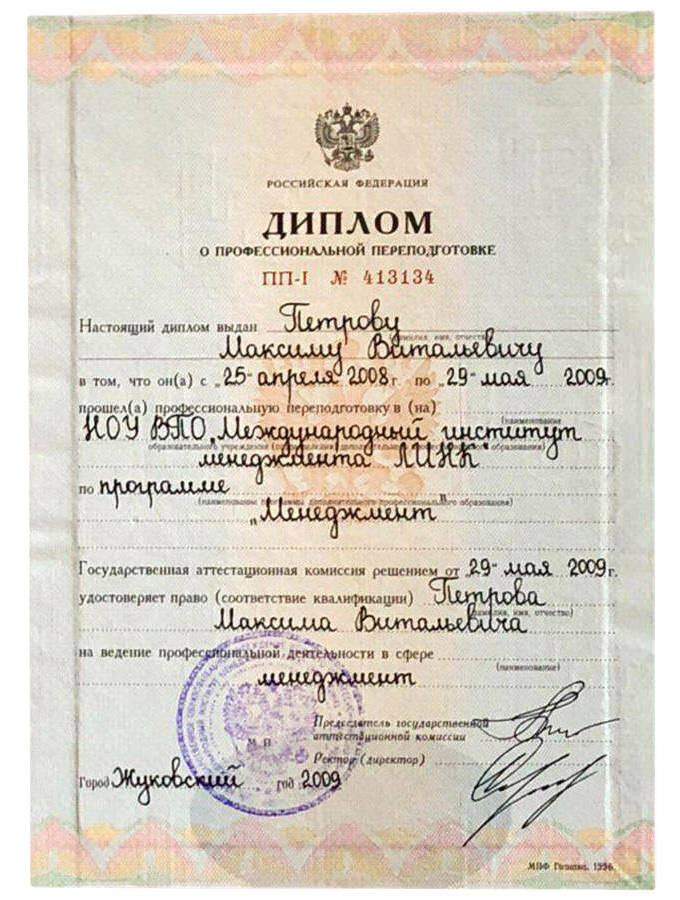 РОССИЙСКАЯ ФЕДЕРАЦИЯ
ДИПЛОМ
О ПРОФЕССИОНАЛЬНОЙ ПЕРЕПОДГОТОВКЕ
ПП-I № 413134
Настоящий диплом выдан Петрову
(фамилия, имя, отчество)
Максиму Витальевичу
в том, что он(а) с „25" апреля 2008г. по „29" мая 2009г.
прошел(а) профессиональную переподготовку в (на)
(наименование
НОУ ВПО „Международный институт
образовательного учреждения дополнительного образования)
менеджмента ЛИНК"
по программе
(наименование программы дополнительного профессионального образования)
„Менеджмент"
Государственная аттестационная комиссия решением от „29" мая 2009г.
удостоверяет право (соответствие квалификации) Петрова
(фамилия, имя, отчество)
Максима Витальевича
на ведение профессиональной деятельности в сфере
(наименование)
менеджмент
Председатель государственной
аттестационной комиссии
М П
Ректор (директор)
Город Жуковский год 2009
МПФ Гознака. 1996.